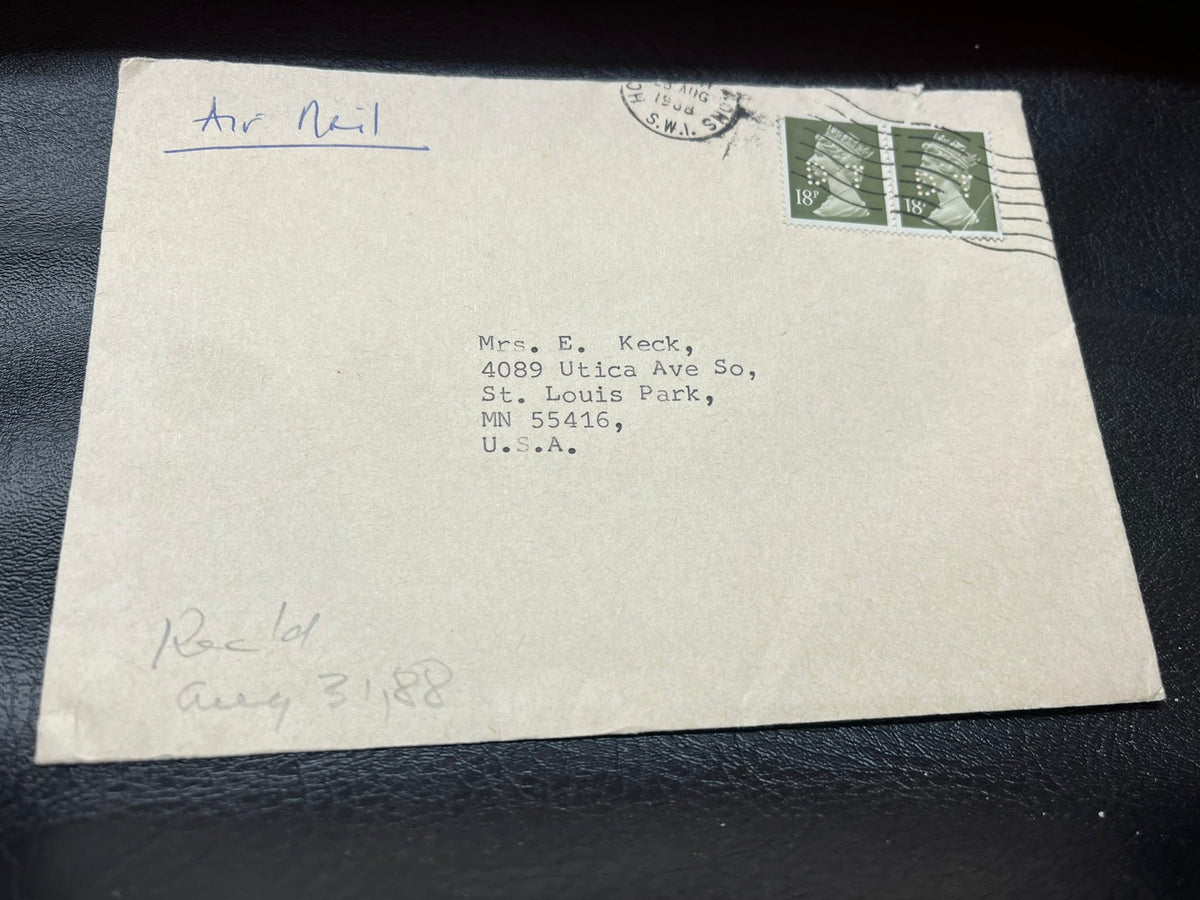 Air Mail
AUG
1988
S.W.1.
18P
18P
Mrs. E. Keck,
4089 Utica Ave So,
St. Louis Park,
MN 55416,
U.S.A.
Rec'd
Aug 31,88